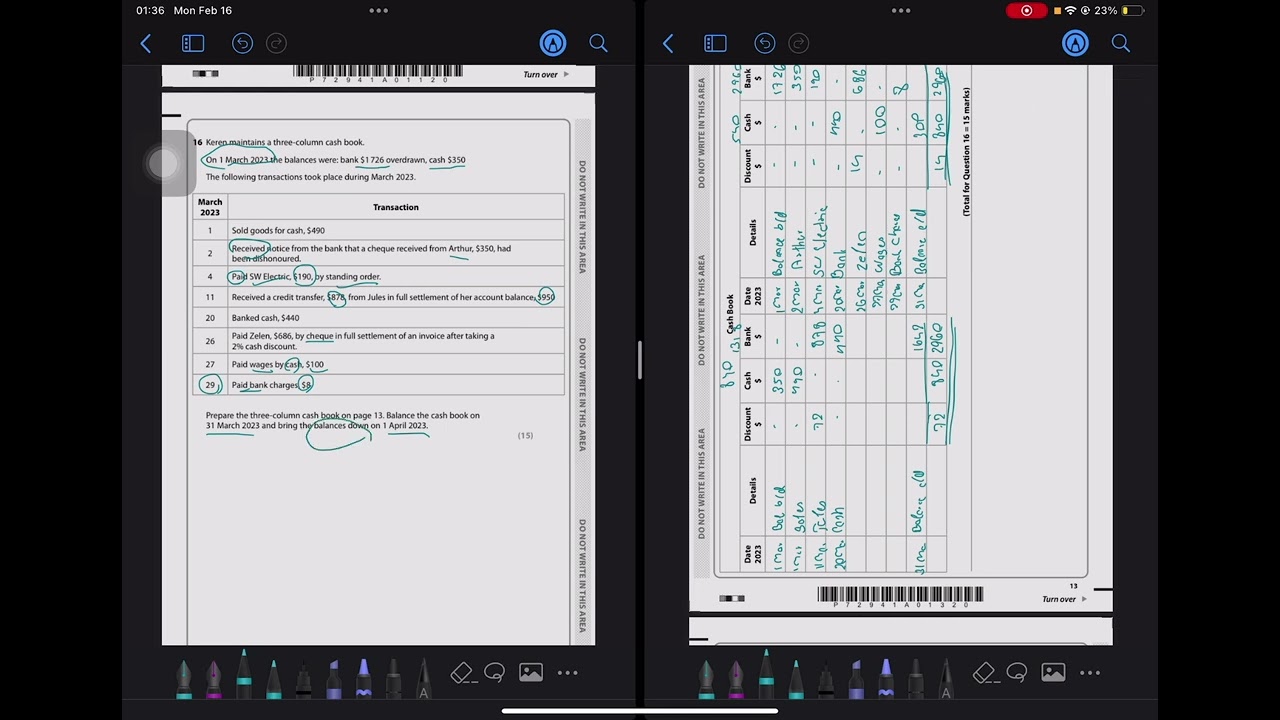 01:36 Mon Feb 16
23%
P72941A01120
Turn over
16 Keren maintains a three-column cash book.
On 1 March 2023 the balances were: bank $1 726 overdrawn, cash $350
The following transactions took place during March 2023.
March 2023 Transaction
1 Sold goods for cash, $490
2 Received notice from the bank that a cheque received from Arthur, $350, had
been dishonoured.
4 Paid SW Electric, $190, by standing order.
11 Received a credit transfer, $878, from Jules in full settlement of her account balance, $950
20 Banked cash, $440
26 Paid Zelen, $686, by cheque in full settlement of an invoice after taking a
2% cash discount.
27 Paid wages by cash, $100
29 Paid bank charges, $8
Prepare the three-column cash book on page 13. Balance the cash book on
31 March 2023 and bring the balances down on 1 April 2023.
(15)
DO NOT WRITE IN THIS AREA
DO NOT WRITE IN THIS AREA
DO NOT WRITE IN THIS AREA
DO NOT WRITE IN THIS AREA
DO NOT WRITE IN THIS AREA
DO NOT WRITE IN THIS AREA
Cash Book
840
2960
Date 2023 Details Discount $ Cash $ Bank $ Date 2023 Details Discount $ Cash $ Bank $
1 Mar Bal b/d - 350 - 1 Mar Balance b/d - - 1726
1 Mar Sales - 490 - 2 Mar Arthur - - 350
11 Mar Jules 72 - 878 4 Mar SW Electric - - 190
20 Mar Cash - 440 20 Mar Bank - 440 -
26 Mar Zelen 14 - 686
27 Mar Wages - 100 -
29 Mar Bank Charges - - 8
31 Mar Balance c/d 1642 31 Mar Balance c/d
72 840 2960 14 840 2960
(Total for Question 16 = 15 marks)
13
P72941A01320
Turn over
A
A